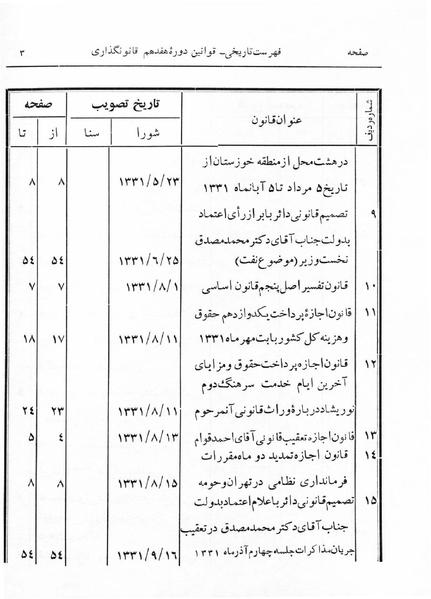 صفحه فهرست تاریخی ــ قوانین دورهٔ هفدهم قانونگذاری ۳
شماره ردیف عنوان قانون تاریخ تصویب صفحه
شورا سنا از تا
در هشت محل از منطقه خوزستان از
تاریخ ۵ مرداد تا ۵ آبانماه ۱۳۳۱ ۱۳۳۱/۵/۲۳ ۸ ۸
۹ تصمیم قانونی دائر بابراز رأی اعتماد
بدولت جناب آقای دکتر محمد مصدق
نخست وزیر (موضوع نفت) ۱۳۳۱/۶/۲۵ ۵٤ ۵٤
۱۰ قانون تفسیر اصل پنجم قانون اساسی ۱۳۳۱/۸/۱ ۷ ۷
۱۱ قانون اجازهٔ پرداخت یکدوازدهم حقوق
و هزینه کل کشور بابت مهر ماه ۱۳۳۱ ۱۳۳۱/۸/۱۱ ۱۷ ۱۸
۱۲ قانون اجازه پرداخت حقوق و مزایای
آخرین ایام خدمت سرهنگ دوم
نوریشاد درباره وراث قانونی آنمرحوم ۱۳۳۱/۸/۱۱ ۲۳ ۲٤
۱۳ قانون اجازه تعقیب قانونی آقای احمد قوام ۱۳۳۱/۸/۱۳ ٤ ۵
۱٤ قانون اجازه تمدید دو ماه مقررات
فرمانداری نظامی در تهران و حومه ۱۳۳۱/۸/۱۵ ۸ ۸
۱۵ تصمیم قانونی دائر باعلام اعتماد بدولت
جناب آقای دکتر محمد مصدق در تعقیب
جریان مذاکرات جلسه چهارم آذر ماه ۱۳۳۱ ۱۳۳۱/۹/۱۶ ۵٤ ۵٤